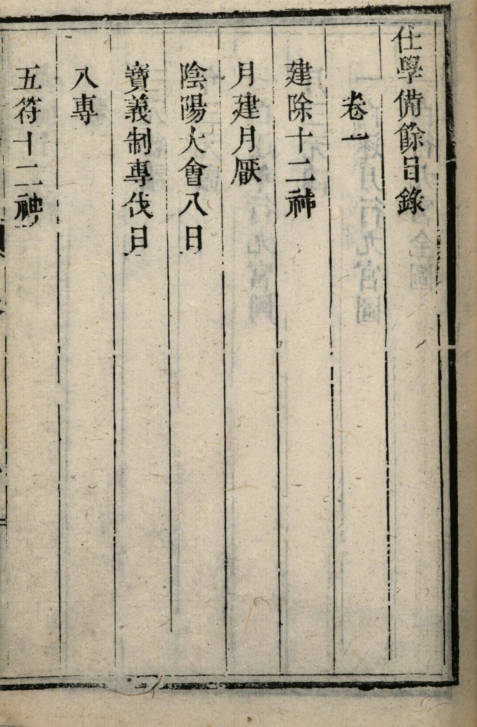 仕學備餘目錄
卷一
建除十二神
月建月厭
陰陽大會八日
寶義制專伐日
八專
五符十二神